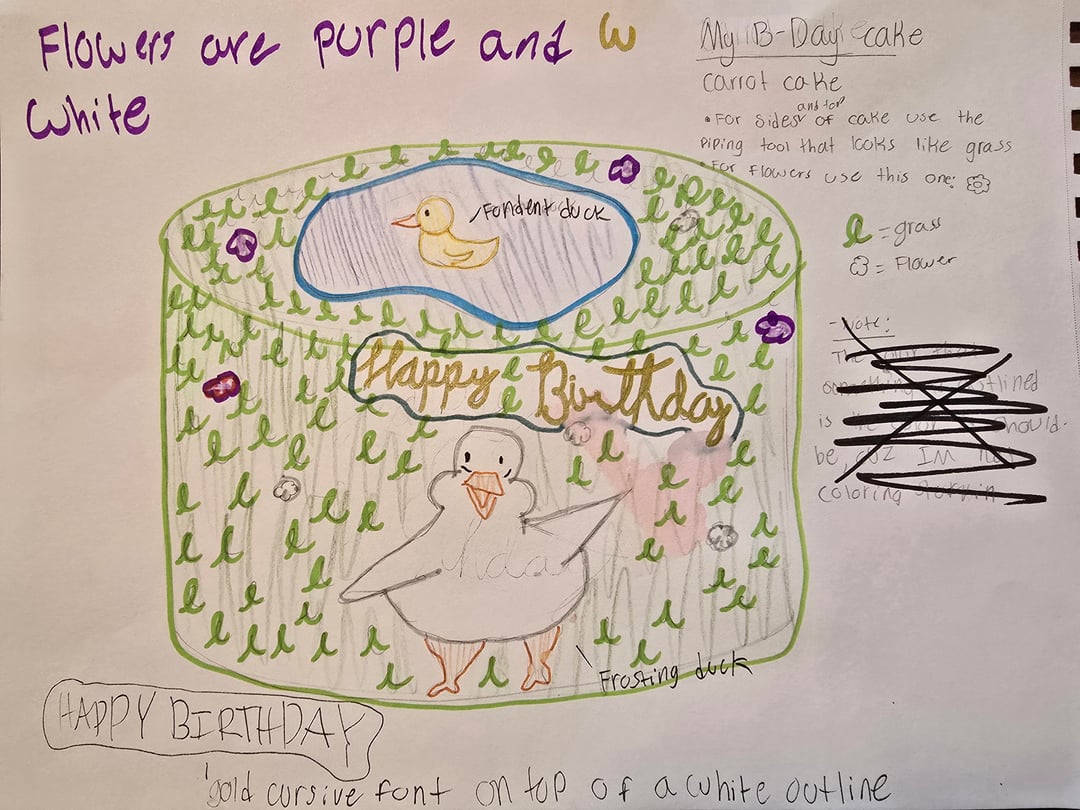 Flowers are purple and W
white
My B-Day cake
carrot cake
• For sides and top of cake use the
piping tool that looks like grass
• For flowers use this one:
= grass
= Flower
Fondent duck
Happy Birthday
- Note:
outlined
is the color should
be, cuz IM
coloring
Frosting duck
HAPPY BIRTHDAY
gold cursive font on top of a white outline